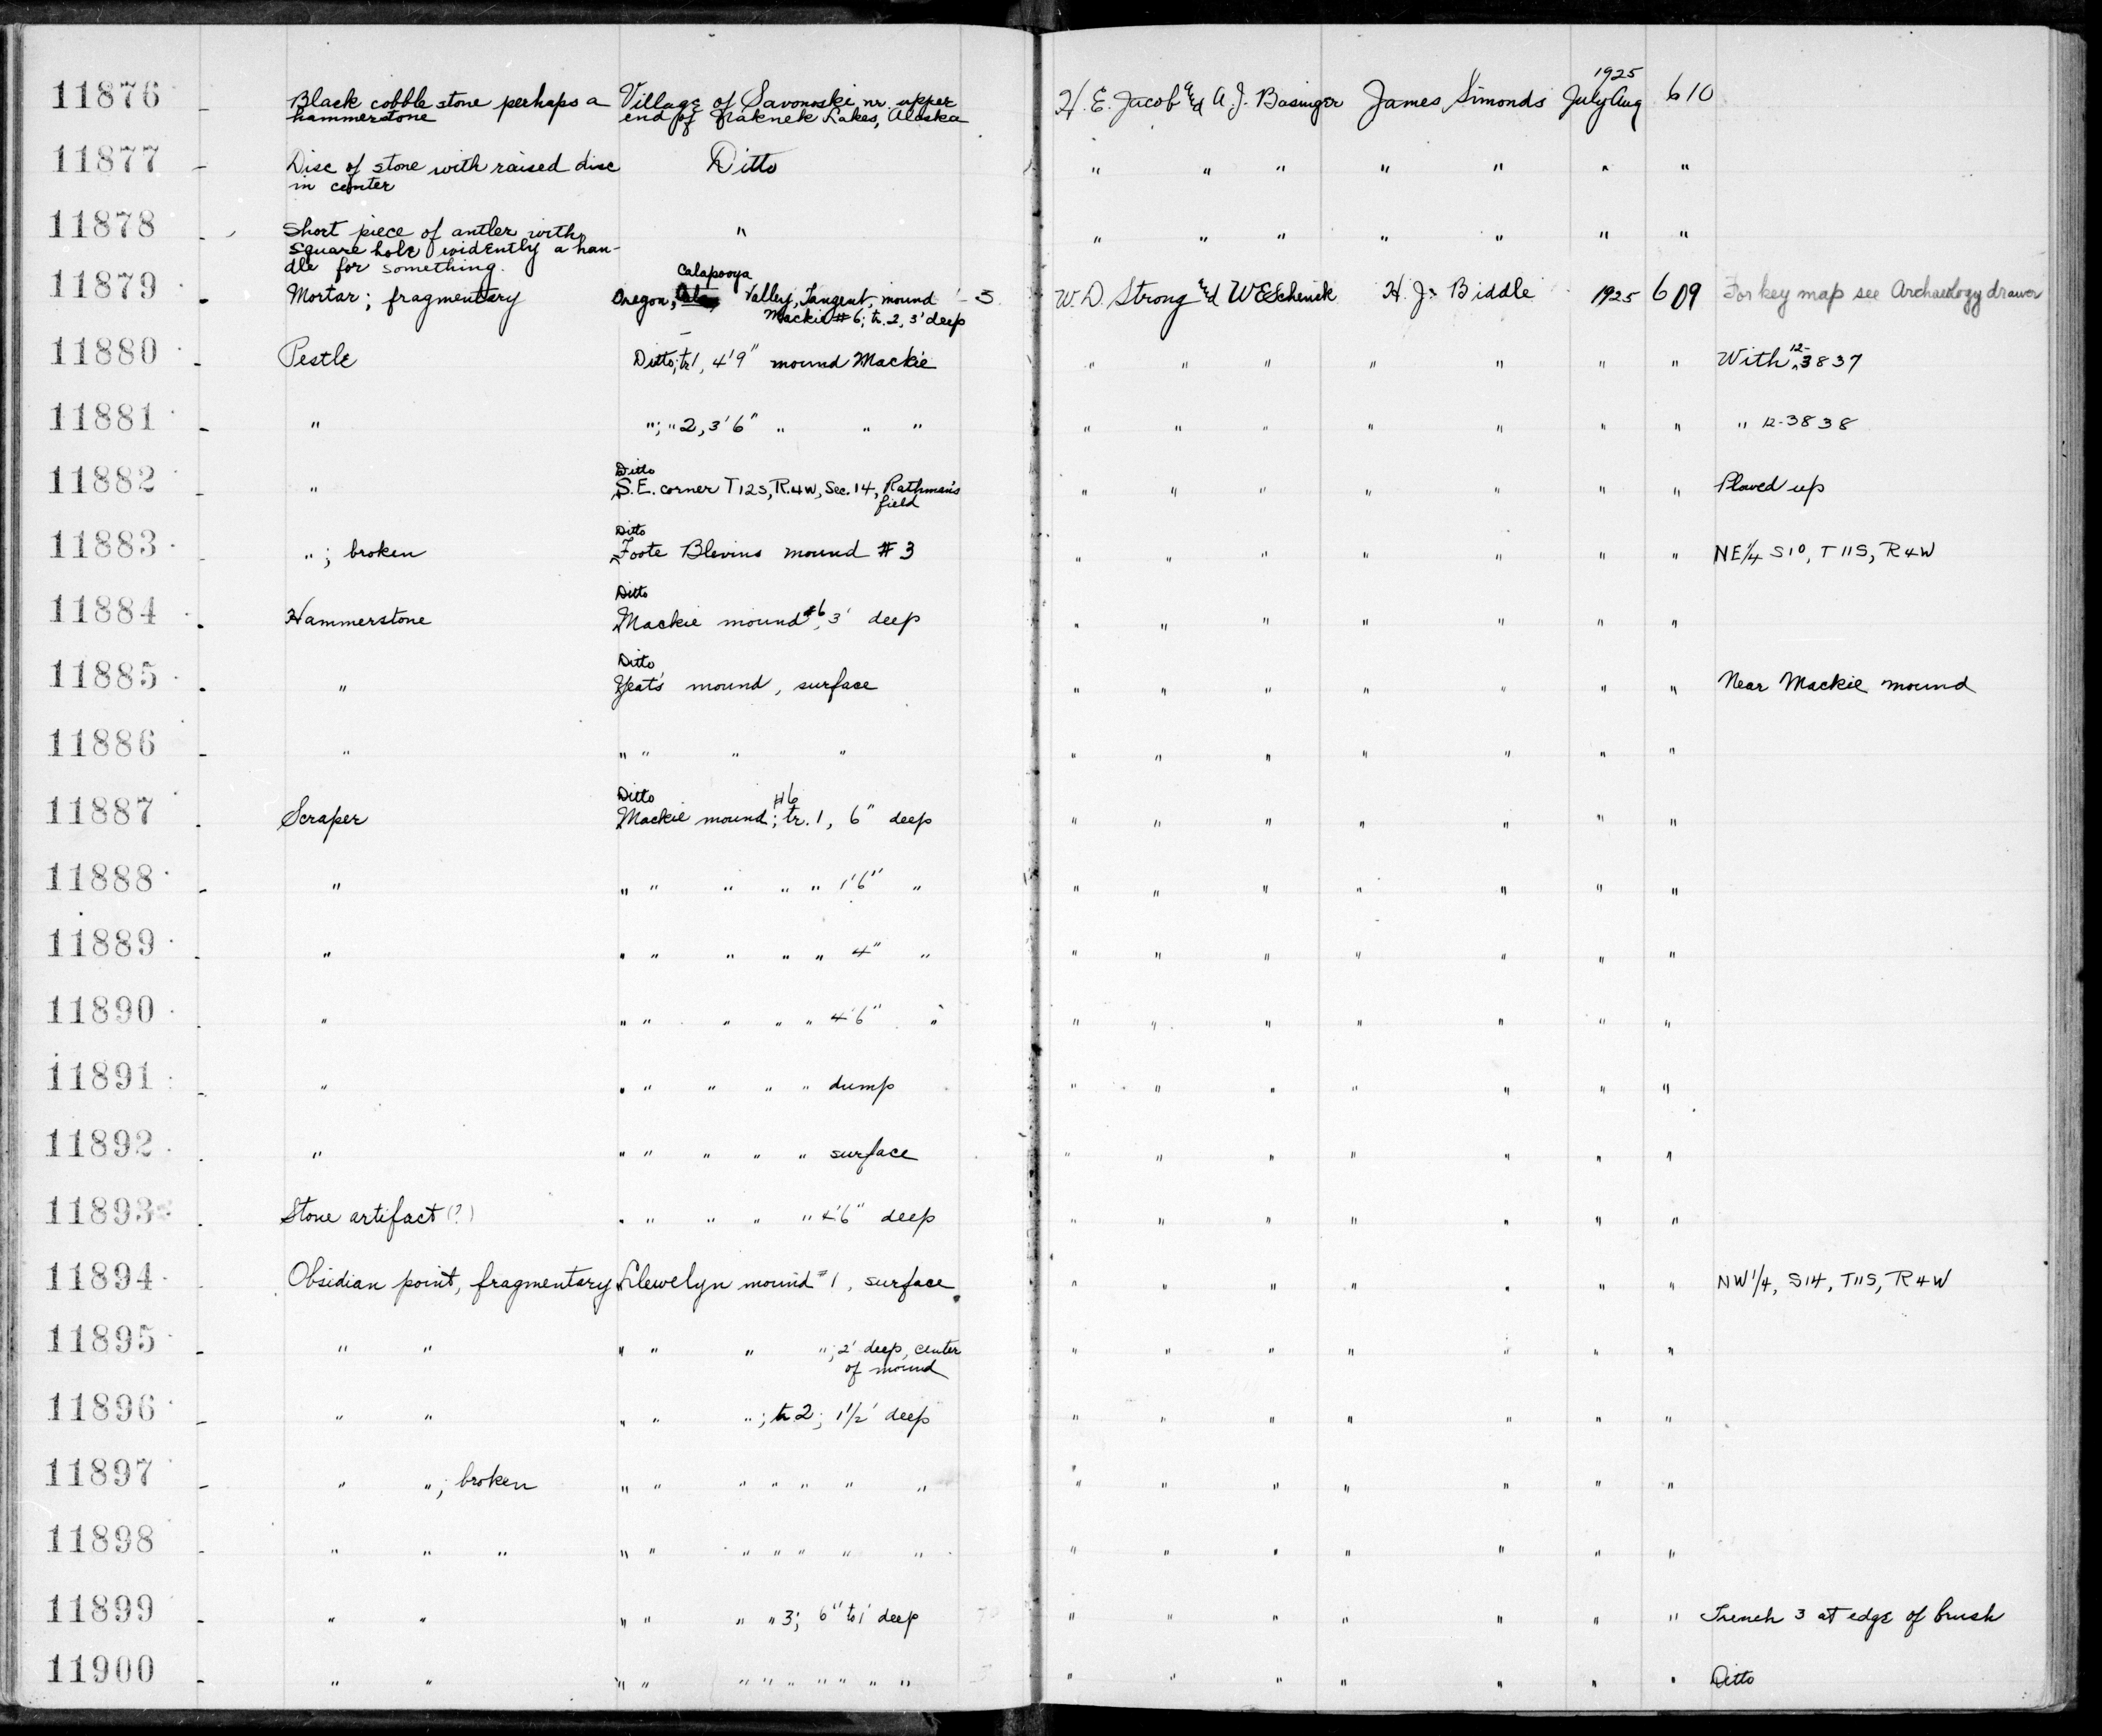 1925
11876 - Black cobble stone perhaps a Village of Savonoski, nr. upper H. E. Jacob and A. J. Basinger James Simonds July Aug 610
hammerstone end of Naknek Lakes, Alaska
11877 - Disc of stone with raised disc Ditto " " " " " " "
in center
11878 - Short piece of antler with " " " " " " " "
square hole evidently a han-
dle for something.
Calapooya
11879 - Mortar; fragmentary Oregon, Valley, Tangent, mound - 3 W. D. Strong and W E Schenck H. J. Biddle 1925 609 For key map see Archaeology drawer
Mackie #6; tr. 2, 3' deep
12-
11880 - Pestle Ditto; tr 1, 4'9" mound Mackie " " " " " " " With 3837
11881 - " "; " 2, 3'6" " " " " " " " " " " " 12-3838
Ditto
11882 - " S.E. corner T12S, R.4W, Sec. 14, Rathman's " " " " " " " Plowed up
field
Ditto
11883 - "; broken Foote Blevins mound #3 " " " " " " " NE 1/4 S10, T11S, R4W
Ditto
11884 - Hammerstone Mackie mound #6, 3' deep " " " " " " "
Ditto
11885 - " Yeat's mound, surface " " " " " " " Near Mackie mound
11886 - " " " " " " " " " " " "
Ditto #6
11887 - Scraper Mackie mound; tr. 1, 6" deep " " " " " " "
11888 - " " " " " " 1'6" " " " " " " " "
11889 - " " " " " " 4" " " " " " " " "
11890 - " " " " " " 4'6" " " " " " " " "
11891 - " " " " " " dump " " " " " " "
11892 - " " " " " " surface " " " " " " "
11893 - Stone artifact (?) " " " " " 4'6" deep " " " " " " "
11894 - Obsidian point, fragmentary Llewelyn mound #1, surface " " " " " " " NW 1/4, S14, T11S, R4W
11895 - " " " " " "; 2' deep, center " " " " " " "
of mound
11896 - " " " " "; tr 2; 1 1/2' deep " " " " " " "
11897 - " "; broken " " " " " " " " " " " " " "
11898 - " " " " " " " " " " " " " " " " "
11899 - " " " " " " 3; 6" to 1' deep " " " " " " " Trench 3 at edge of brush
11900 - " " " " " " " " " " " " " " " " " " Ditto